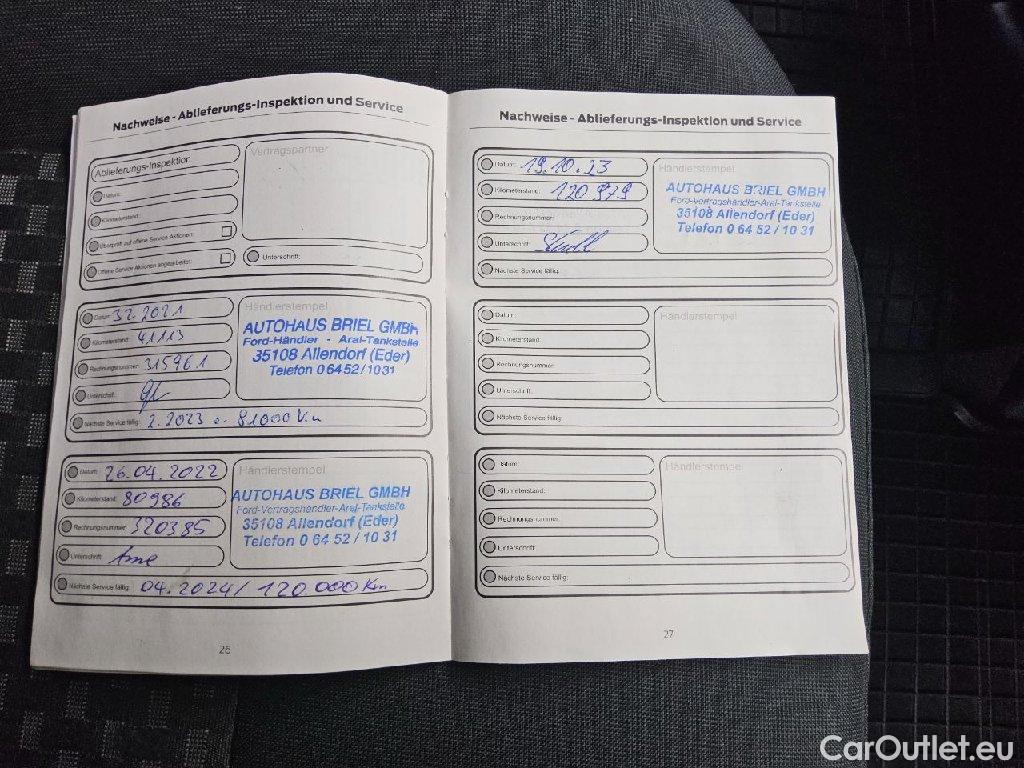 Nachweise - Ablieferungs-Inspektion und Service
Ablieferungs-Inspektion
Vertragspartner
Datum:
Kilometerstand:
Überprüft auf offene Service Aktionen:
Offene Service Aktionen abgearbeitet:
Unterschrift:
Datum: 3.2.2021
Händlerstempel
Kilometerstand: 41113
Rechnungsnummer: 315961
Unterschrift:
Nächste Service fällig: 2.2023 o. 81000 Km
AUTOHAUS BRIEL GMBH
Ford-Händler - Aral-Tankstelle
35108 Allendorf (Eder)
Telefon 0 64 52 / 10 31
Datum: 26.04.2022
Händlerstempel
Kilometerstand: 80986
Rechnungsnummer: 320385
Unterschrift:
Nächste Service fällig: 04.2024 / 120 000 Km
AUTOHAUS BRIEL GMBH
Ford-Vertragshändler-Aral-Tankstelle
35108 Allendorf (Eder)
Telefon 0 64 52 / 10 31
26
Nachweise - Ablieferungs-Inspektion und Service
Datum: 19.10.23
Händlerstempel
Kilometerstand: 120 979
Rechnungsnummer:
Unterschrift:
Nächste Service fällig:
AUTOHAUS BRIEL GMBH
Ford-Vertragshändler-Aral-Tankstelle
35108 Allendorf (Eder)
Telefon 0 64 52 / 10 31
Datum:
Händlerstempel
Kilometerstand:
Rechnungsnummer:
Unterschrift:
Nächste Service fällig:
Datum:
Händlerstempel
Kilometerstand:
Rechnungsnummer:
Unterschrift:
Nächste Service fällig:
27
CarOutlet.eu